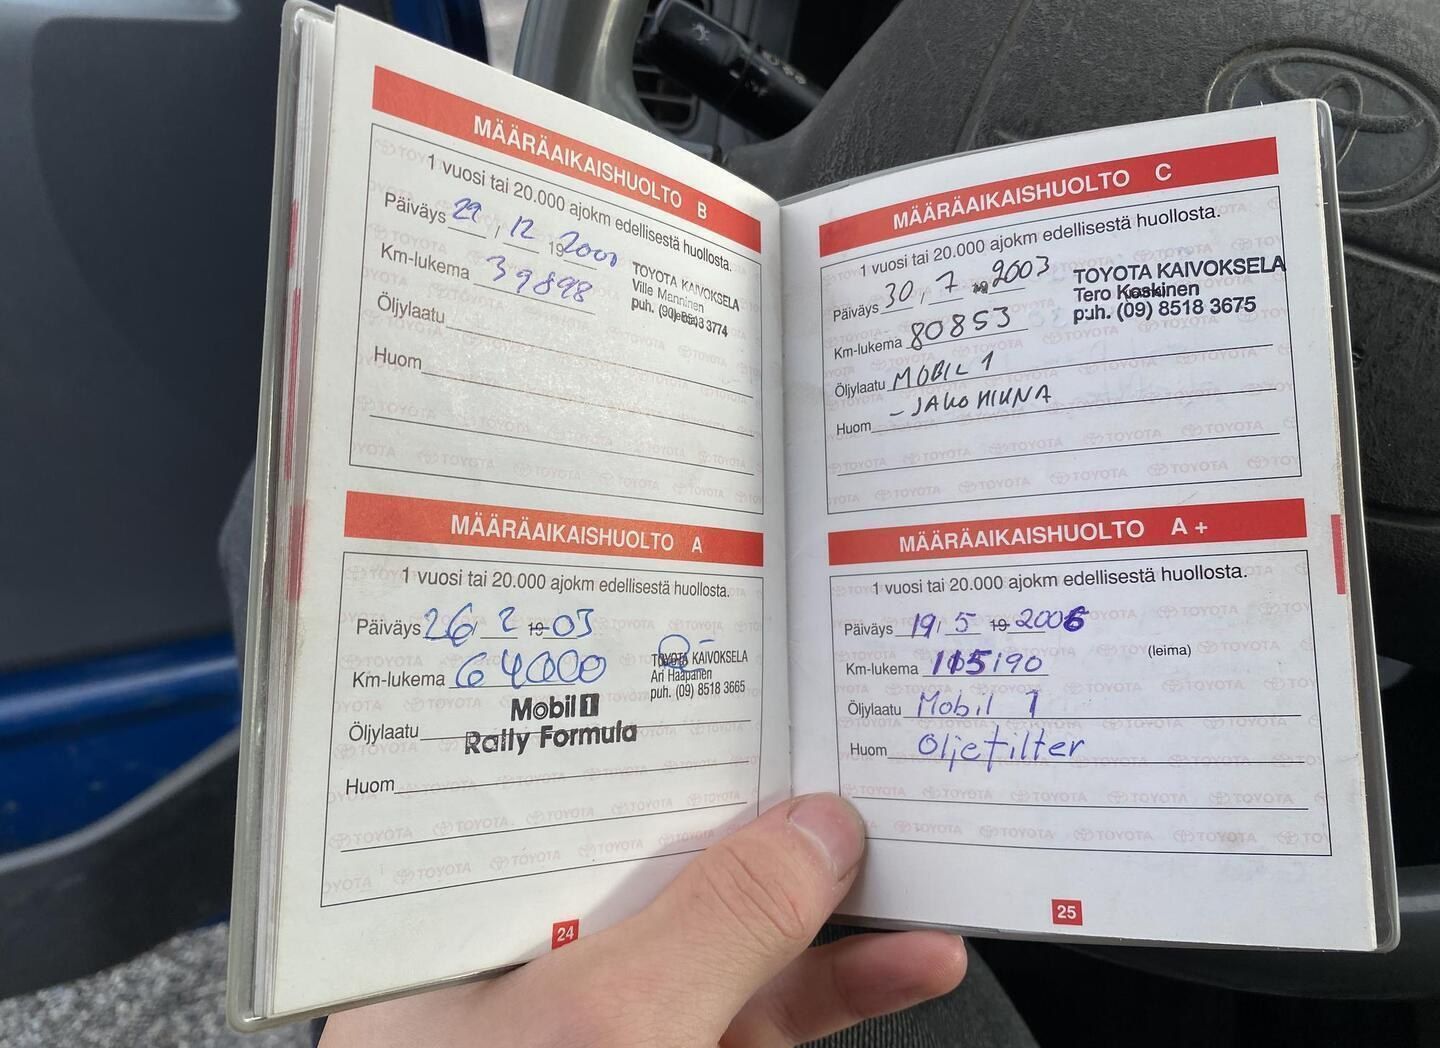 MÄÄRÄAIKAISHUOLTO B
1 vuosi tai 20.000 ajokm edellisestä huollosta.
Päiväys 29, 12 19 2000
Km-lukema 39898
TOYOTA KAIVOKSELA
Ville Manninen
puh. (90) 8503 3774
Öljylaatu
Huom
MÄÄRÄAIKAISHUOLTO A
1 vuosi tai 20.000 ajokm edellisestä huollosta.
Päiväys 26, 2 19 03
Km-lukema 64000
TOYOTA KAIVOKSELA
Ari Haapanen
puh. (09) 8518 3665
Öljylaatu Mobil 1
Rally Formula
Huom
24
MÄÄRÄAIKAISHUOLTO C
1 vuosi tai 20.000 ajokm edellisestä huollosta.
Päiväys 30, 7 2003
Km-lukema 80853
TOYOTA KAIVOKSELA
Tero Koskinen
puh. (09) 8518 3675
Öljylaatu MOBIL 1
Huom - JAKOHIHNA
MÄÄRÄAIKAISHUOLTO A +
1 vuosi tai 20.000 ajokm edellisestä huollosta.
Päiväys 19, 5 19 2006
Km-lukema 115190
(leima)
Öljylaatu Mobil 1
Huom Oljefilter
25